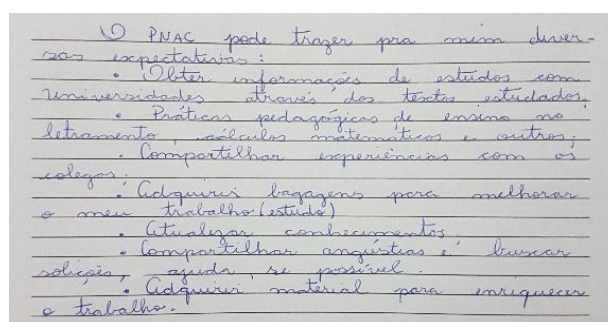 O PNAC pode trazer pra mim diver-
sas expectativas:
• Obter informações de estudos com
universidades através dos textos estudados.
• Práticas pedagógicas de ensino no
letramento, cálculos matemáticos e outros;
• Compartilhar experiências com os
colegas;
• Adquirir bagagens para melhorar
o meu trabalho (estudo)
• Atualizar conhecimentos.
• Compartilhar angústias e buscar
solições, ajuda, se possível.
• Adquirir material para enriquecer
o trabalho.